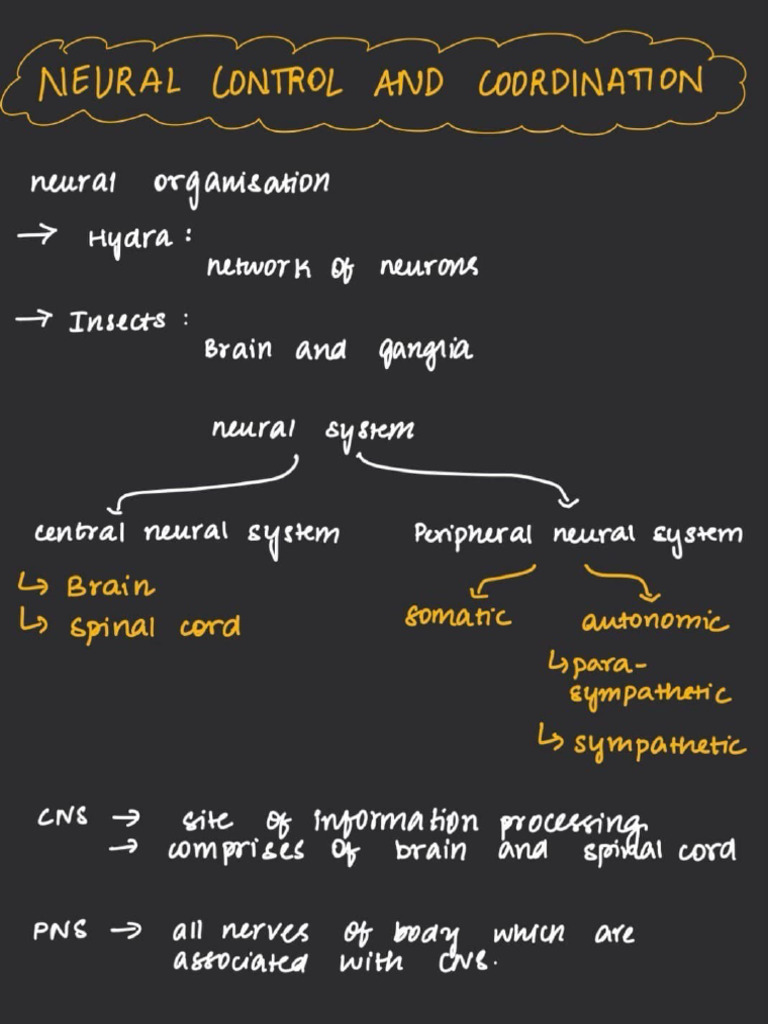 NEURAL CONTROL AND COORDINATION
neural organisation
→ Hydra :
network of neurons
→ Insects :
Brain and ganglia
neural system
central neural system
Peripheral neural system
↳ Brain
↳ spinal cord
somatic
autonomic
↳ para-
sympathetic
↳ sympathetic
CNS → site of information processing
→ comprises of brain and spinal cord
PNS → all nerves of body which are
associated with CNS.